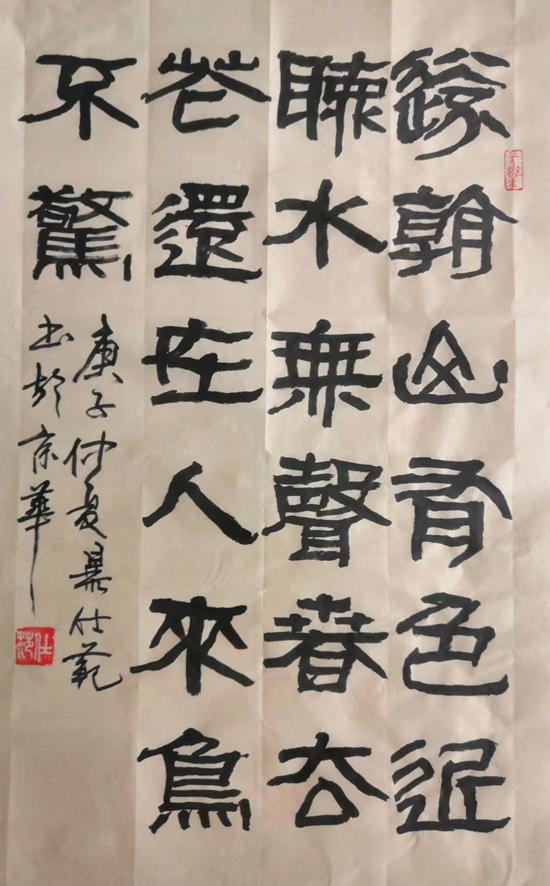 遠看山有色近
聽水無聲春去
花還在人來鳥
不驚
庚子仲夏仕範
书於京華